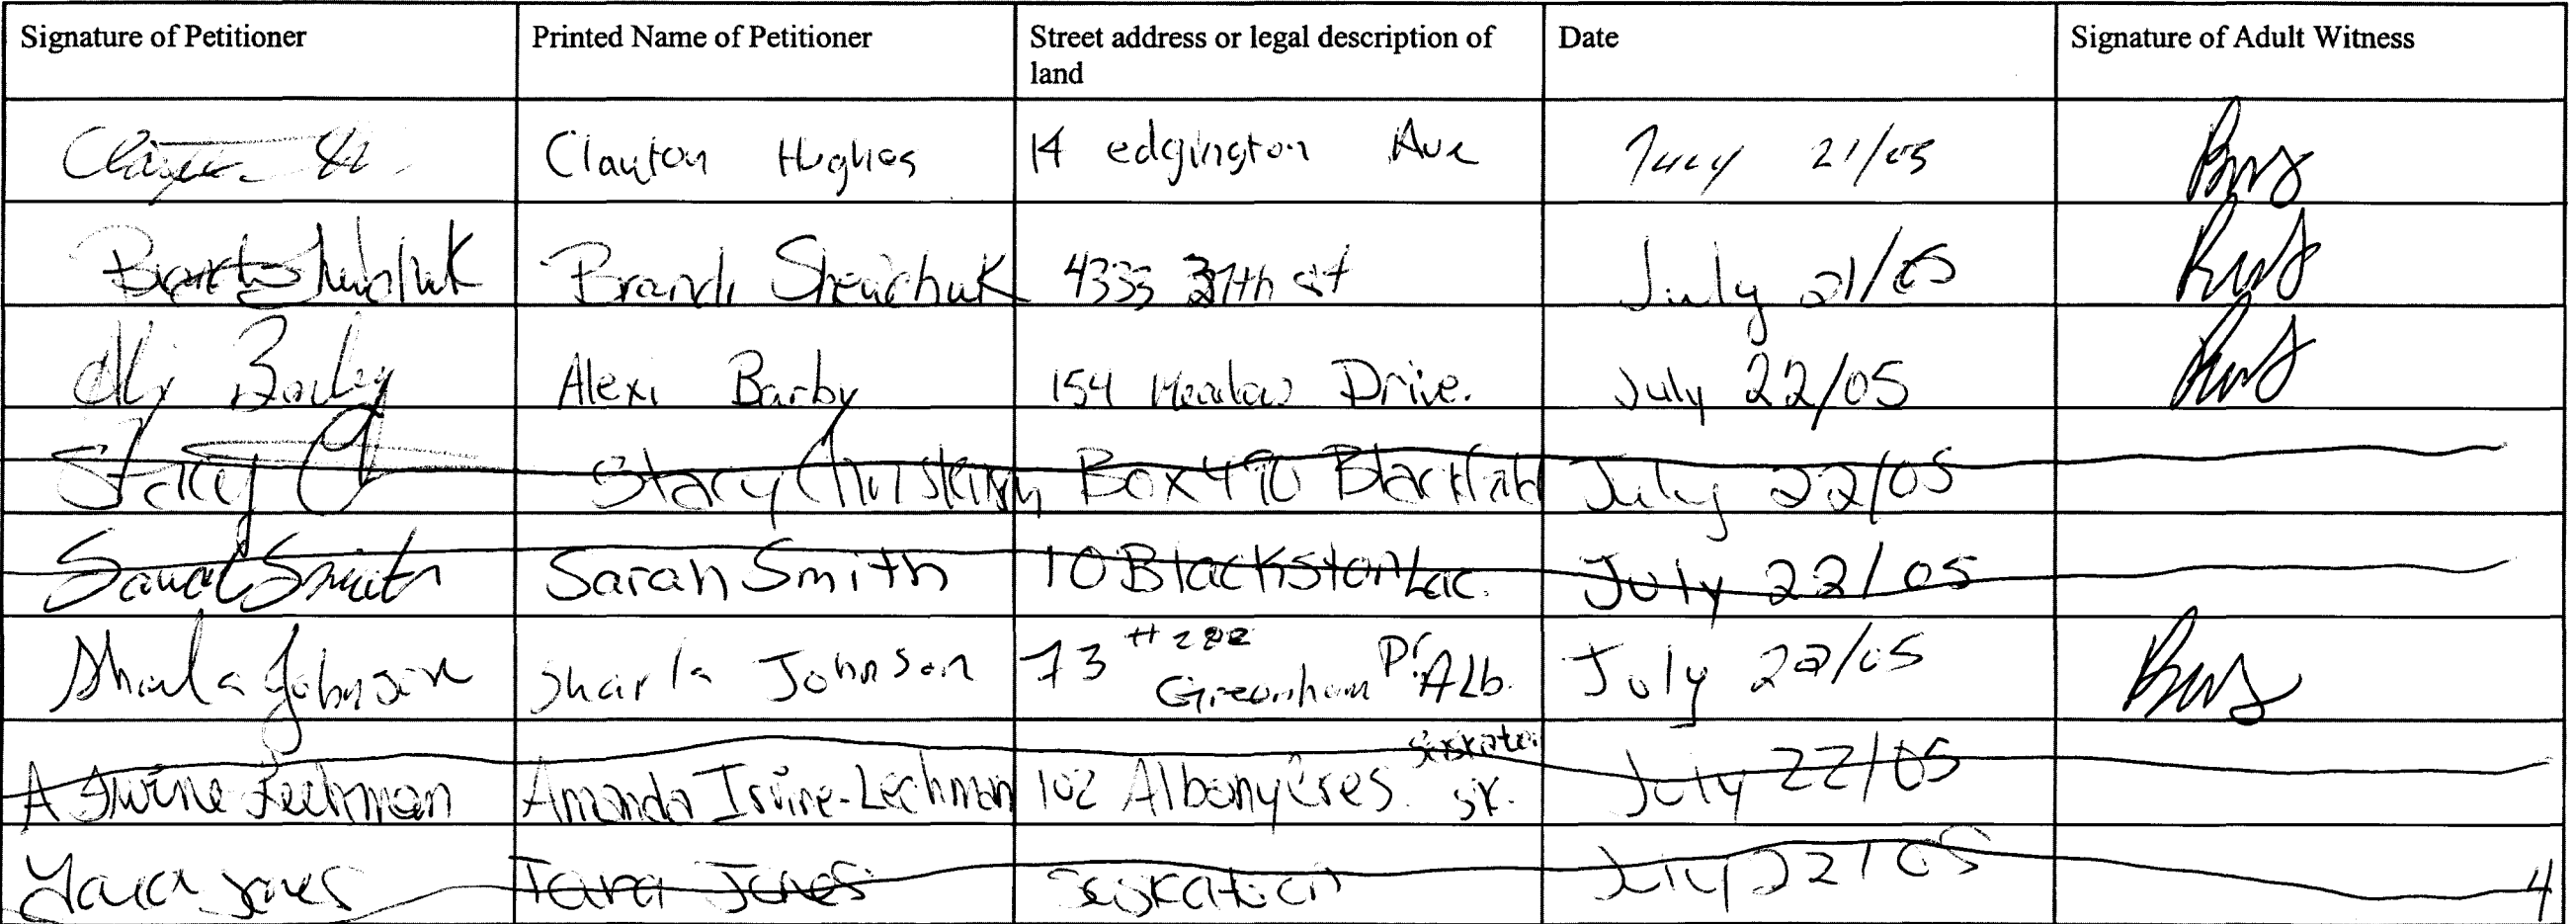 Signature of Petitioner Printed Name of Petitioner Street address or legal description of land Date Signature of Adult Witness
Clayton Hughes 14 edgington Ave July 21/05
Brandi Shewchuk 4333 37th st July 21/05
Alexi Barby 154 Meadow Drive. July 22/05
Stacy Stacy Box 490 July 22/05
Sarah Smith Sarah Smith 10 Blackston Lac. July 22/05
Johnson Sharla Johnson 73 Pl. Alb. July 22/05
A Irvine Lechman Amanda Irvine-Lechman 102 Albany cres. sk. July 22/05
Tara Jones Tara Jones July 22/05
4